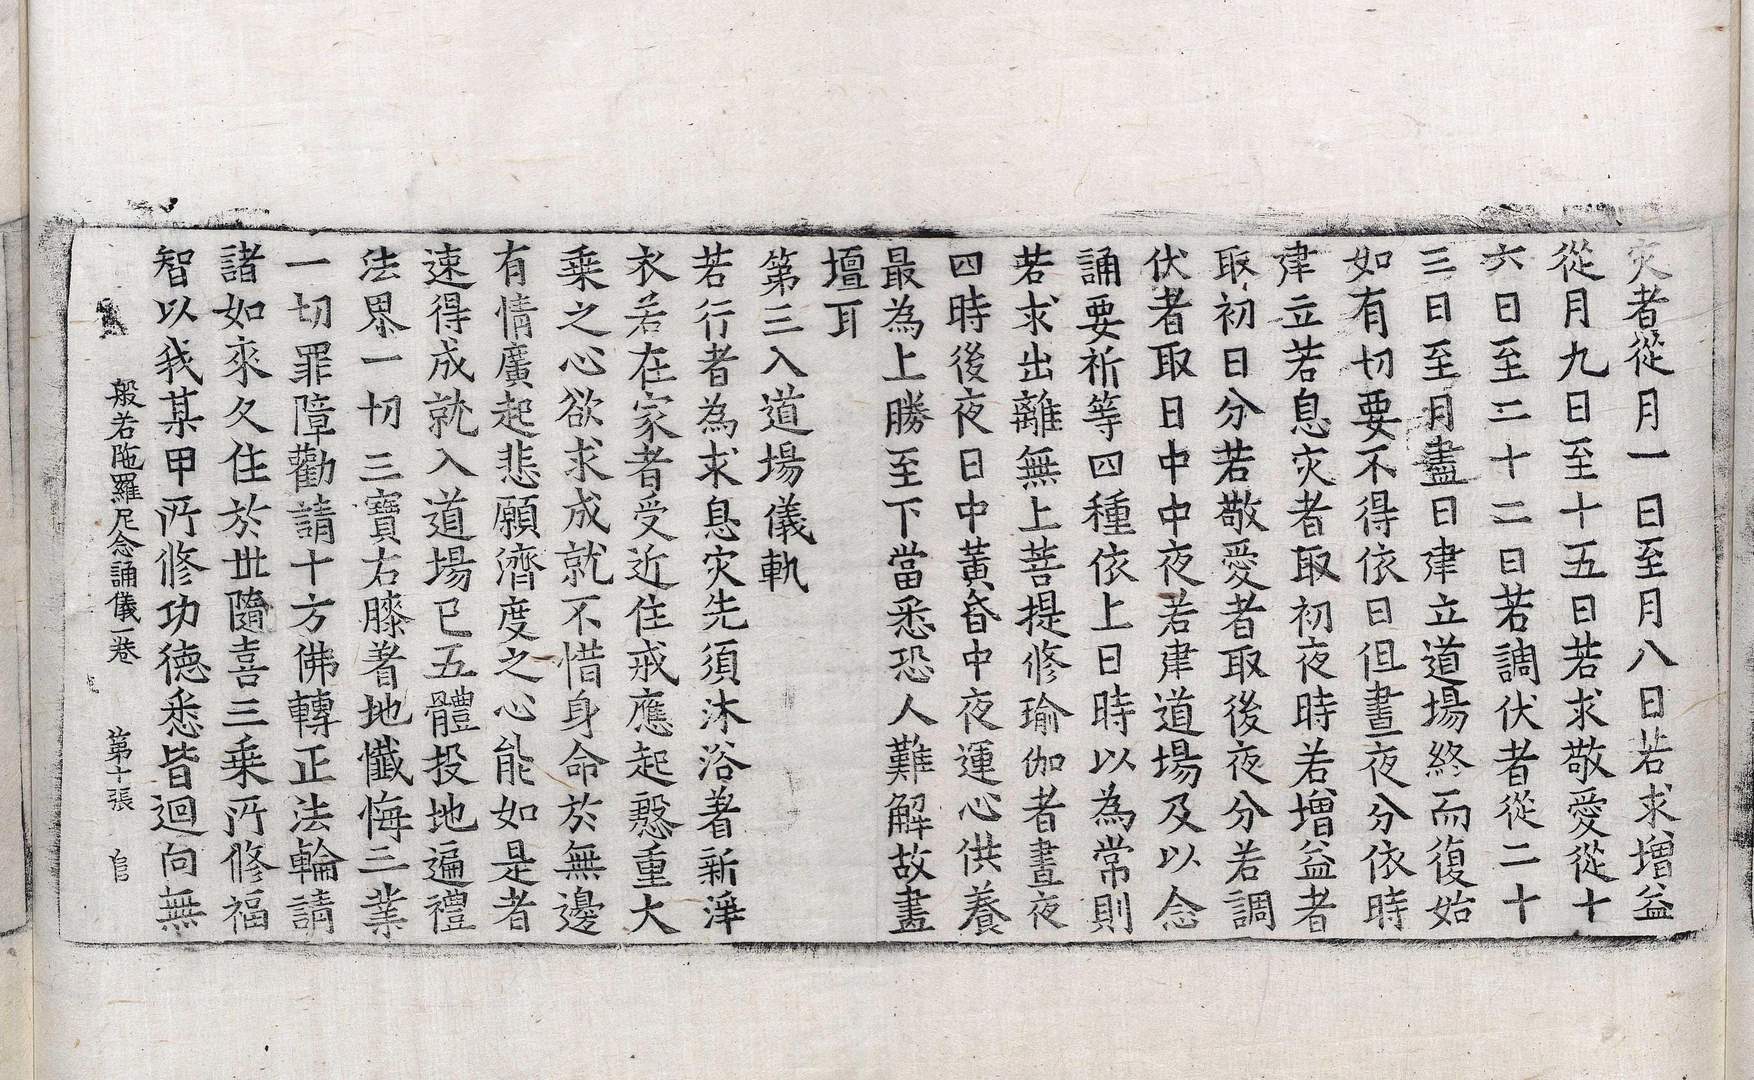 灾者從月一日至月八日若求增益
從月九日至十五日若求敬愛從十
六日至二十二日若調伏者從二十
三日至月盡日建立道場終而復始
如有切要不得依日但晝夜分依時
建立若息灾者取初夜時若增益者
取初日分若敬愛者取後夜分若調
伏者取日中中夜若建道場及以念
誦要祈等四種依上日時以為常則
若求出離無上菩提修瑜伽者晝夜
四時後夜日中黃昏中夜運心供養
最為上勝至下當悉恐人難解故畫
壇耳
第三入道場儀軌
若行者為求息灾先須沐浴著新淨
衣若在家者受近住戒應起慇重大
乘之心欲求成就不惜身命於無邊
有情廣起悲願濟度之心能如是者
速得成就入道場已五體投地遍禮
法界一切三寶右膝著地懺悔三業
一切罪障勸請十方佛轉正法輪請
諸如來久住於世隨喜三乘所修福
智以我某甲所修功德悉皆迴向無
般若陁羅尼念誦儀一卷 第十張 官